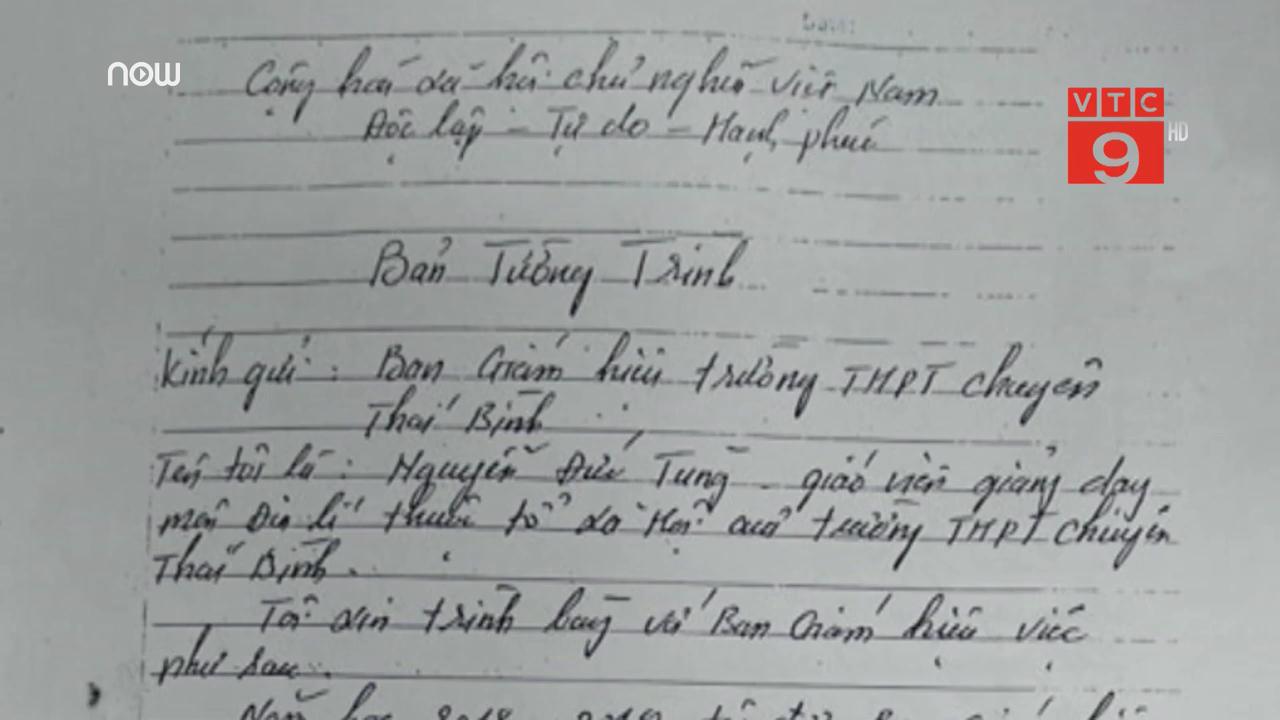 now
VTC
9
HD
Cộng hoà xã hội chủ nghĩa Việt Nam
Độc lập - Tự do - Hạnh phúc
Bản Tường Trình
Kính gửi : Ban Giám hiệu trường THPT chuyên
Thái Bình
Tên tôi là : Nguyễn Đức Tùng - giáo viên giảng dạy
môn Địa lí thuộc tổ Xã Hội của trường THPT Chuyên
Thái Bình.
Tôi xin trình bày với Ban Giám hiệu việc
như sau:
Năm học 2018 - 2019 tôi